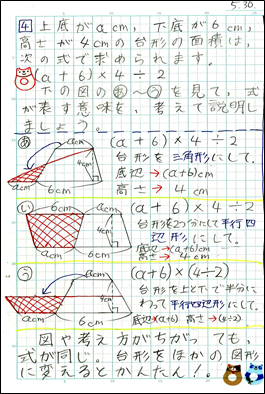 5.30
4 上底がacm,下底が6cm,
高さが4cmの台形の面積は,
次の式で求められます。
(a+6)×4÷2
下の図のあ~うを見て,式
が表す意味を,考えて説明し
ましょう。
あ
acm
4cm
acm
6cm
(a+6)×4÷2
台形を三角形にして。
底辺→(a+6)cm
高さ→4cm
い
6cm
acm
4cm
acm
6cm
(a+6)×4÷2
台形を2つ分にして平行四
辺形にして。
底辺→(a+6)cm
高さ→4cm
う
acm
4cm
acm
6cm
(a+6)×(4÷2)
台形を上と下で半分に
わって平行四辺形にして。
底辺→(a+6) 高さ→(4÷2)
図や考え方がちがっても,
式が同じ。台形をほかの図形
に変えるとかんたん!。